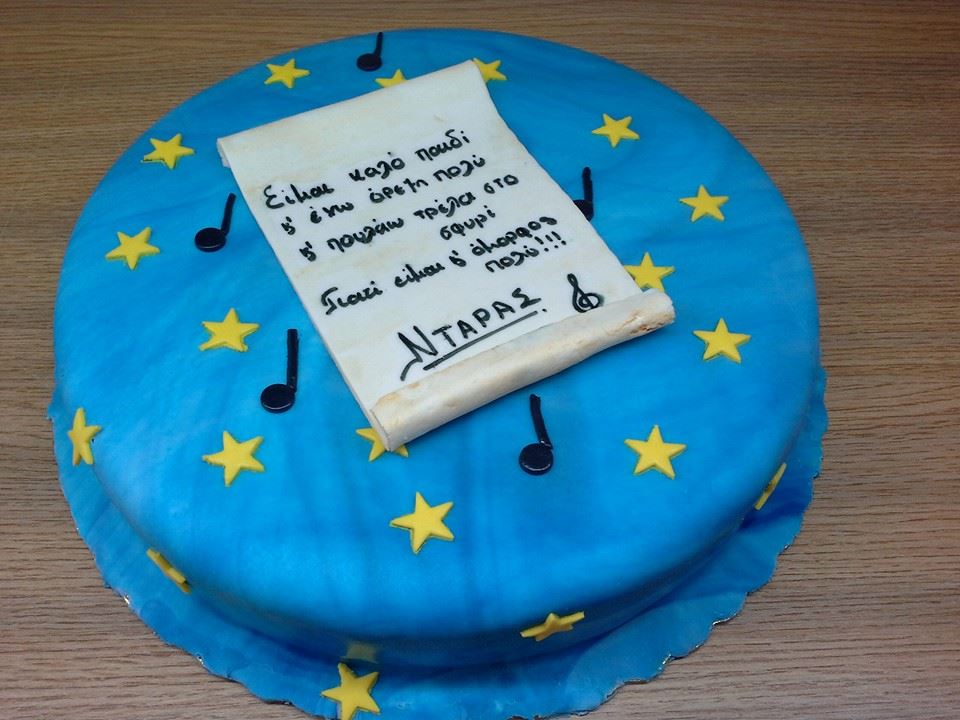 Είμαι καλό παιδί
κ' έχω όρεξη πολύ
κ' πουλάω τρέλα στο
σφυρί
Γιατί είμαι κ' όμορφος
πολύ!!!
ΝΤΑΡΑΣ